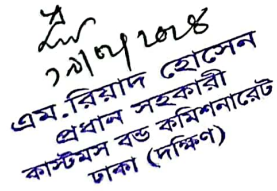 ১৯/০৭/২০২৪
এম. রিয়াদ হোসেন
প্রধান সহকারী
কাস্টমস বন্ড কমিশনারেট
ঢাকা (দক্ষিণ)